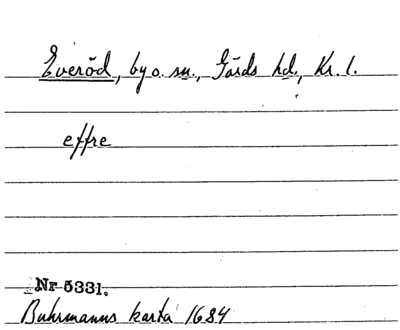 Everöd, by o. sn., Gärds hd., Kr. l.
effre
Nr 5331.
Buhrmanns karta 1684